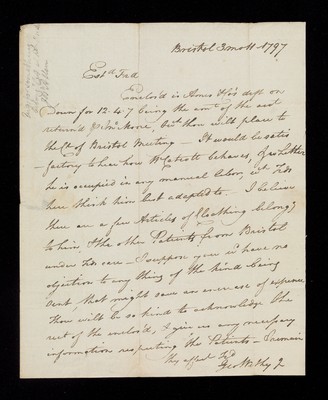 Bristol 3 mo 11 1797
Est'd Frd
Enclos'd is Ames & Co's dft on
Down for 12.4.7 being the amt of the acct
return'd p Wm Moore, wch thou wilt place to
the Ct of Bristol Meeting — It would be satis
factory to hear how behaves, Letter
he is occupied in any manual labor, wch Fds
here think him best adapted to — I believe
there are a few Articles of Cloathing belongg
to him & the other Patients from Bristol
under Fds care — I suppose you wd have no
objection to any thing of the kind being
sent, that might save an increase of expence,
Thou wilt be so kind to acknowledge the
rect of the enclos'd, & give us any necessary
information respecting the Patients — I remain
thy affect Fd
Geo Wthy Jr